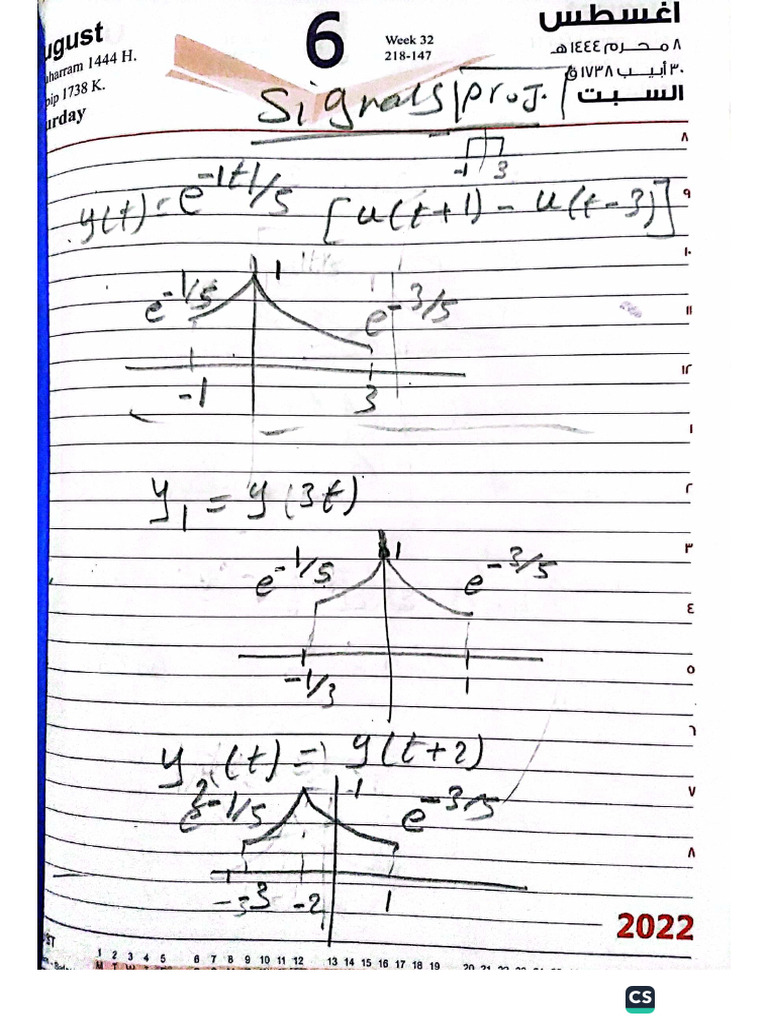 أغسطس
ugust
6
Week 32
218-147
٨ محرم ١٤٤٤ هـ
٣٠ أبيب ١٧٣٨ ق
السبت
uharram 1444 H.
bip 1738 K.
urday
Signals | proj. |
٨
-1 3
y(t) = e^{-|t|/5} [u(t+1) - u(t-3)]
٩
١٠
1
e^{-1/5} e^{-3/5}
١١
١٢
-1 3
١
y_1 = y(3t)
٢
1
٣
e^{-1/5} e^{-3/5}
٤
-1/3 1
٥
y_2(t) = y(t+2)
٦
1
٧
e^{-1/5} e^{-3/5}
٨
-3 -2 1
2022
1 2 3 4 5 6 7 8 9 10 11 12 13 14 15 16 17 18 19 20 21
CS